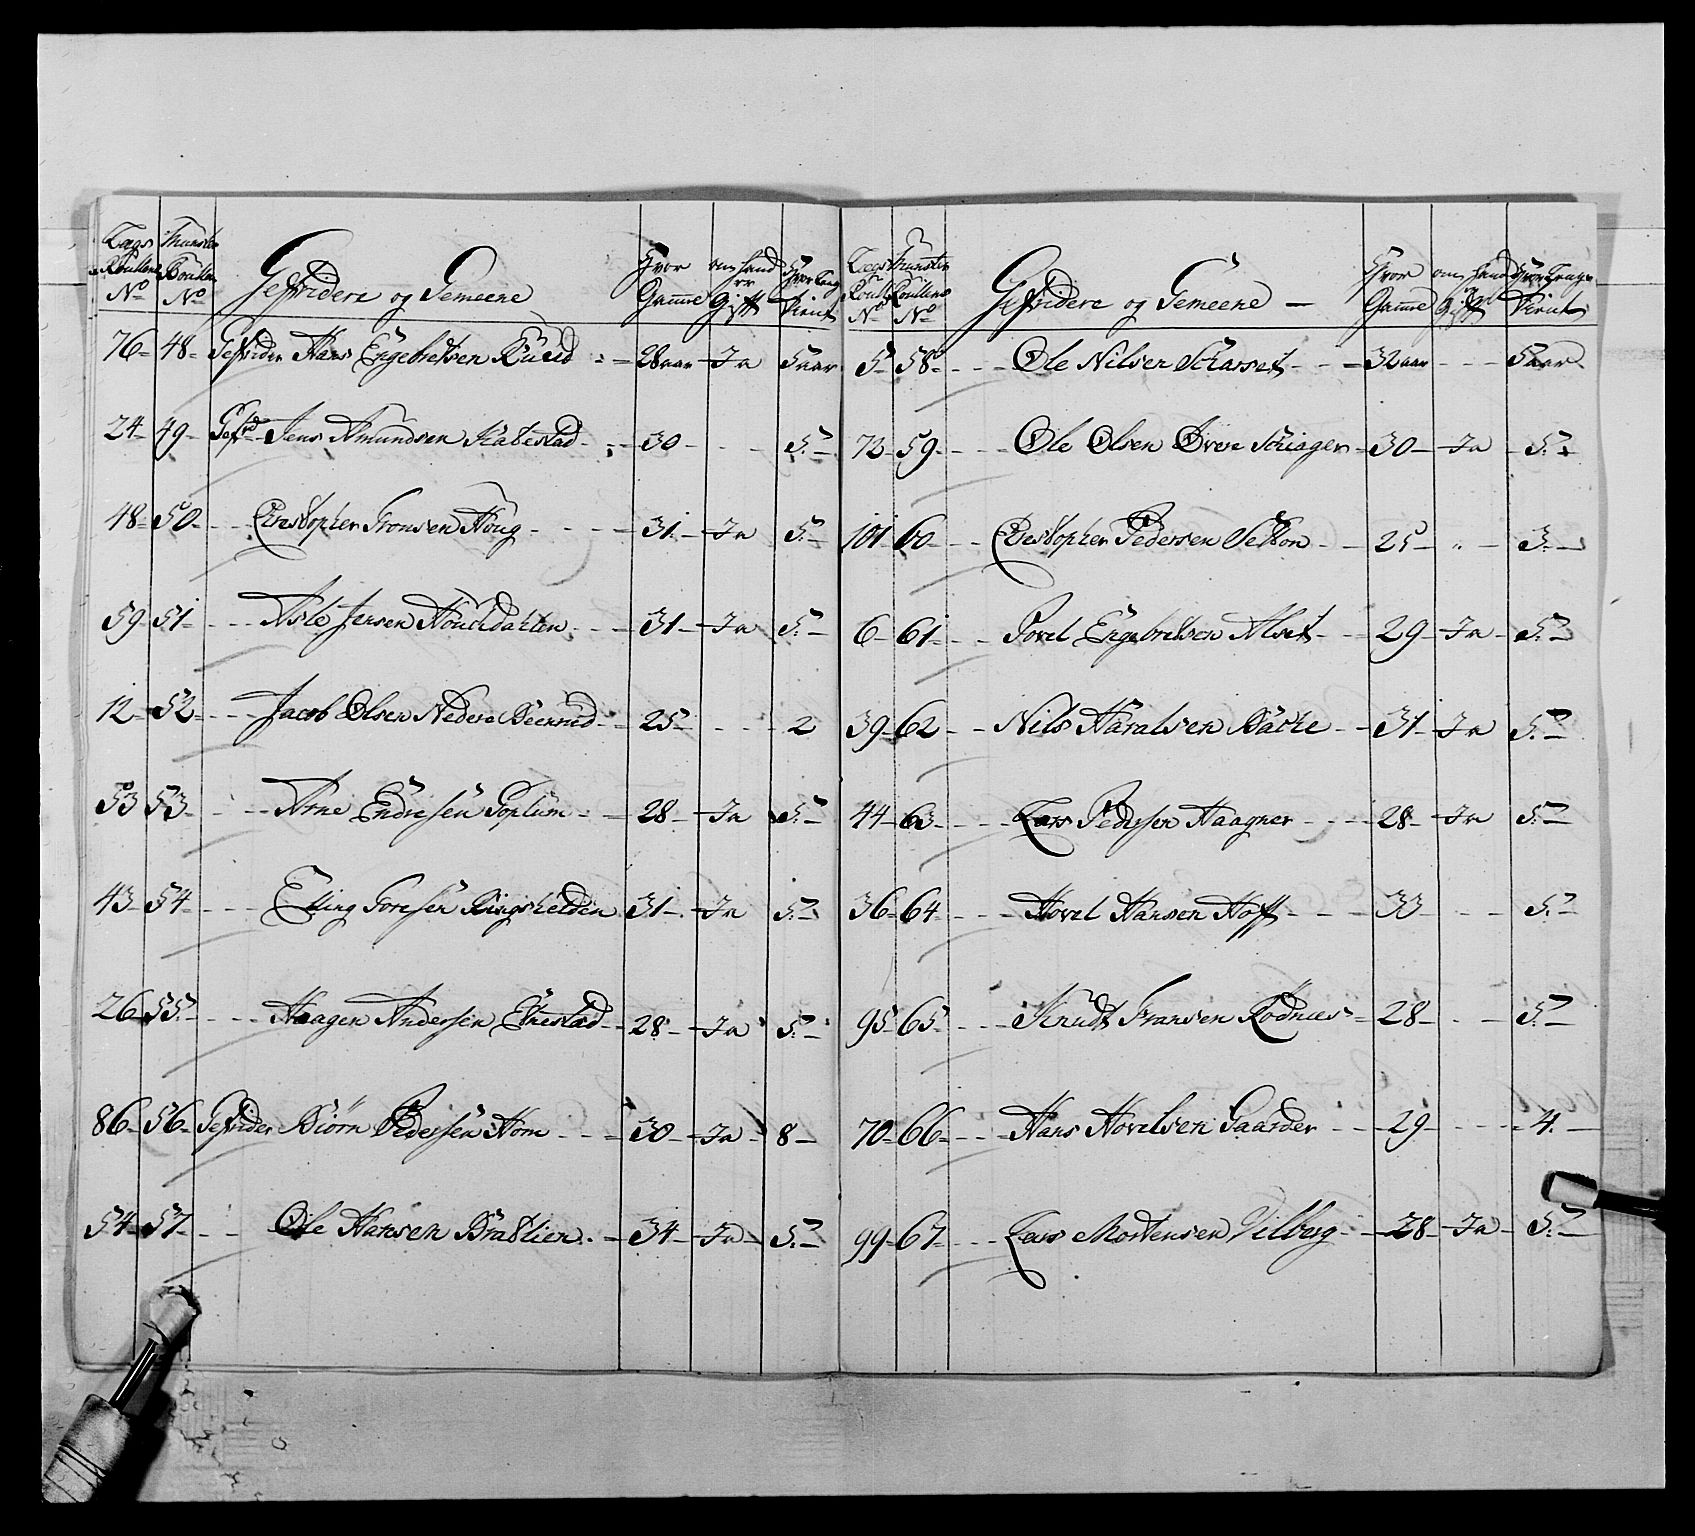 Lægs Roullens No | Mønster Roullens No | Gefreidere og Gemeene | Hvor Gamme | om hand er Gift | Hvor Lenge Tient
76 - 48 - Gefreider Hans Engebretsen Ruud - 28 aar - Ja - 5 aar
24 - 49 - Gefrd Jens Amundsen Katestad - 30 - - - 5 -
48 - 50 - Christopher Gronsen Houg - 31 - Ja - 5 -
59 - 51 - Asle Jensen - 31 - Ja - 5 -
12 - 52 - Jacob Olsen Nedere Beerrud - 25 - - - 2
53 - 53 - Arne Endresen Goplum - 28 - Ja - 5 -
43 - 54 - Elling Goresen Ringshelden - 31 - Ja - 5 -
26 - 55 - Haagen Andersen - 28 - Ja - 5 -
86 - 56 - Gefreider Biørn Pedersen Hom - 30 - Ja - 8 -
54 - 57 - Ole Hansen Bratlien - 34 - Ja - 5 -
Lægs Roull No | Mønster Roullens No | Gefreidere og Gemeene - | Hvor Gamme | om hand er Gift | Hvor Lenge Tient
5 - 58 - Ole Nilsen - 32 aar - - - 5 aar
72 - 59 - Ole Olsen Øvre Schiager - 30 - Ja - 5 -
101 - 60 - Christopher Pedersen - 25 - " - 3 -
6 - 61 - Povel Engebretsen Alset - 29 - Ja - 5 -
39 - 62 - Nils Haralsen Bache - 31 - Ja - 5 -
44 - 63 - Lars Pedersen Haagner - 28 - Ja - 5 -
36 - 64 - Hovel Hansen Hoff - 33 - - - 5 -
95 - 65 - Knudt Fransen Rødnæs - 28 - - - 5 -
70 - 66 - Hans Hovelsen Gaarder - 29 - - - 4 -
99 - 67 - Lars Mortensen Vilberg - 28 - Ja - 5 -